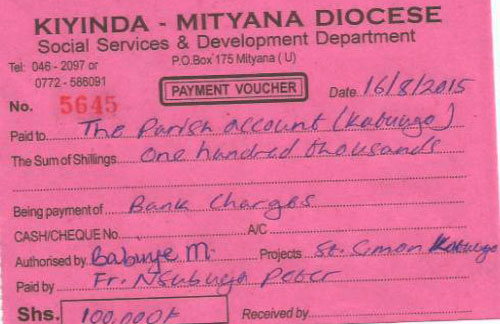 KIYINDA - MITYANA DIOCESE
Social Services & Development Department
Tel: 046 - 2097 or
0772 - 586091
P.O.Box 175 Mityana ( U )
PAYMENT VOUCHER
Date 16/8/2015
No. 5645
Paid to The Parish account (Kabuugo)
The Sum of Shillings One hundred thousands
Being payment of Bank Charges
CASH/CHEQUE No. A/C
Authorised by Babuye M. Projects St. Simon
Paid by Fr. Nsubuga Peter
Shs. 100,000/= Received by